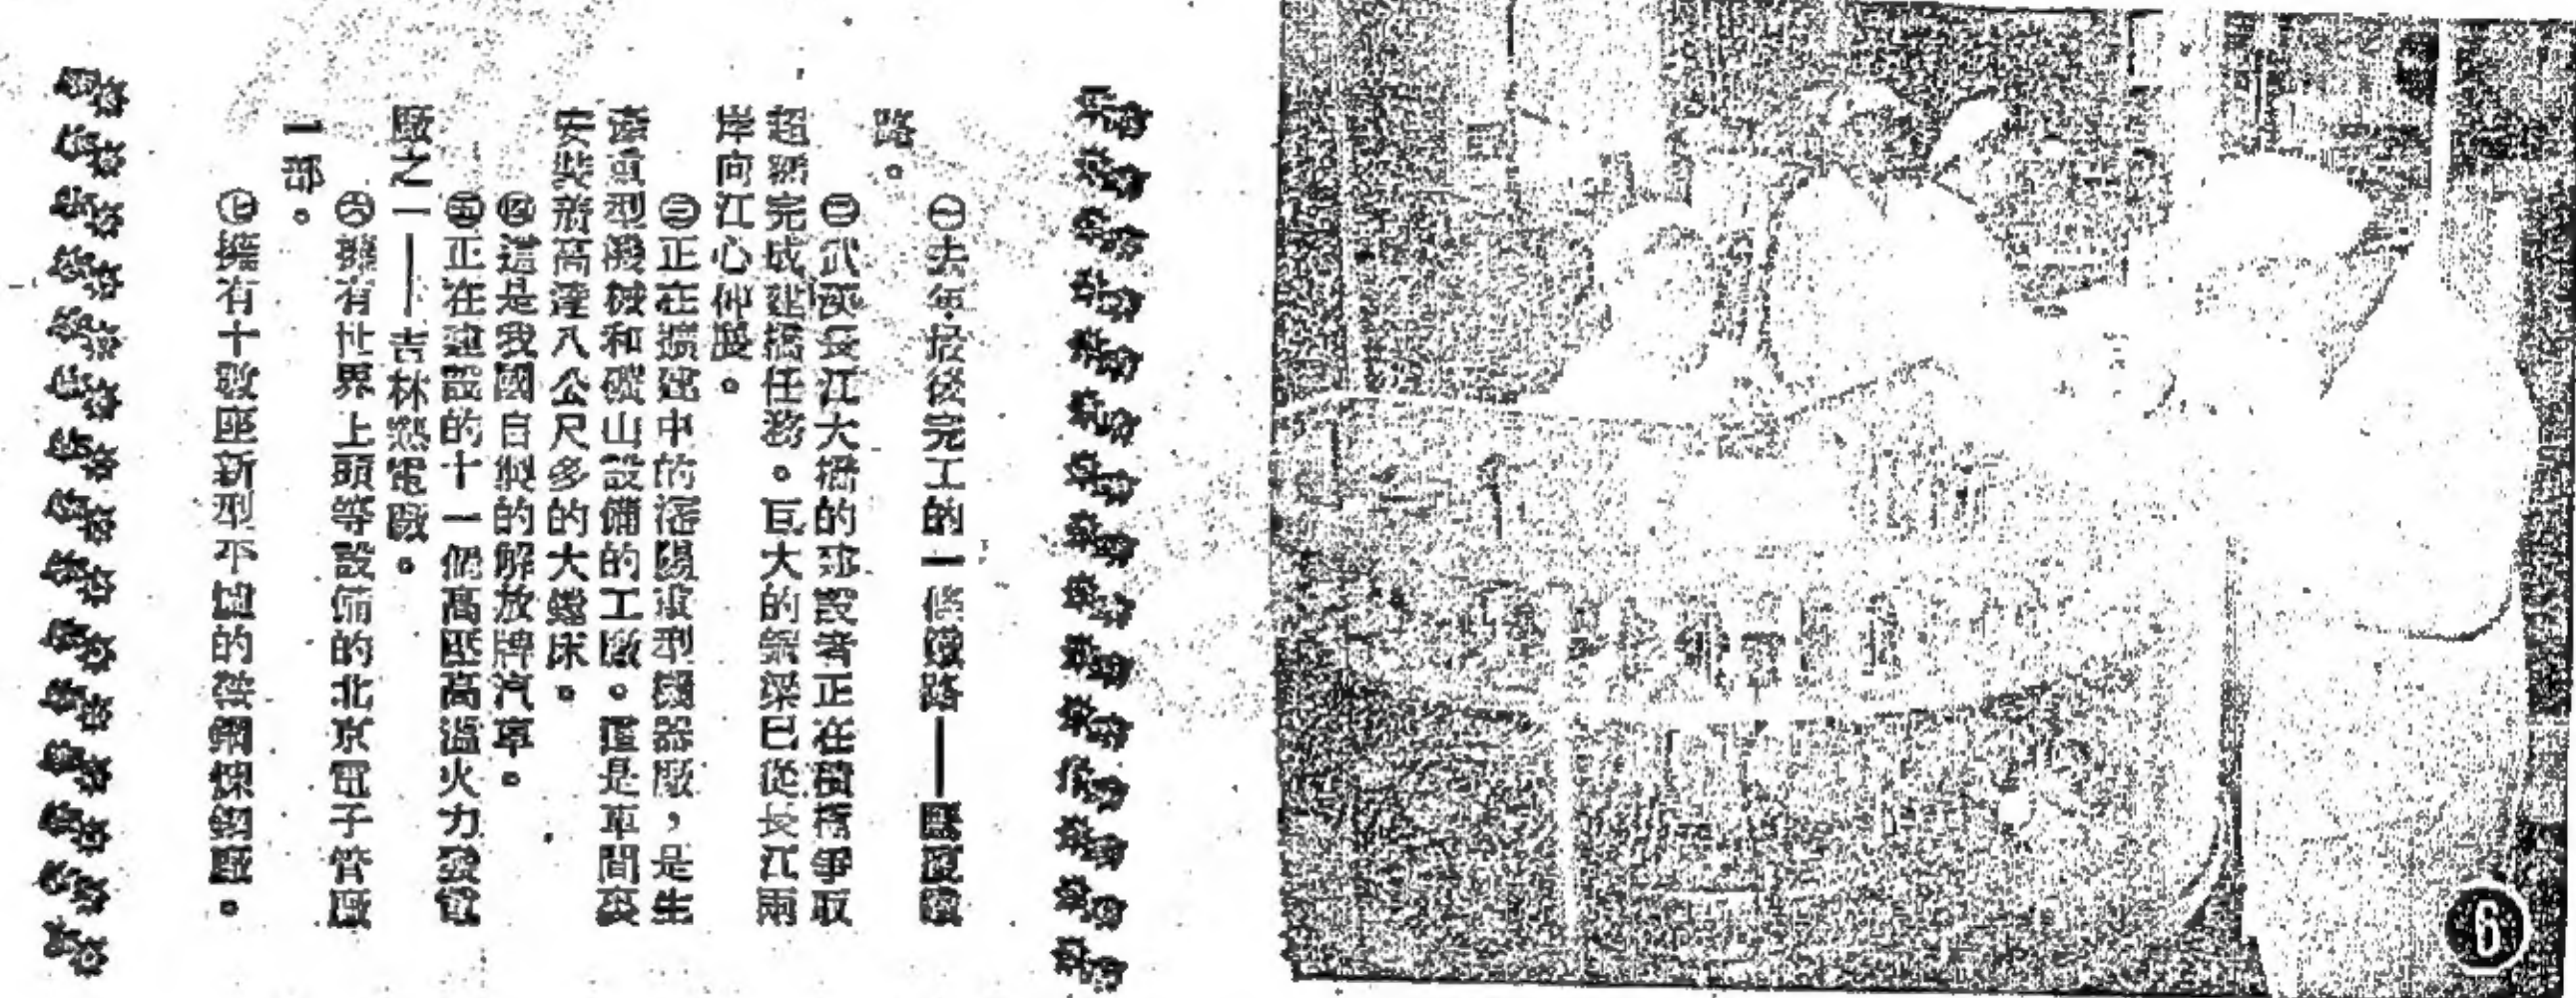 ㊀去年最後完工的一條鐵路——鷹廈鐵
路。
㊁武漢長江大橋的建設者正在積極爭取
超額完成建橋任務。巨大的鋼梁已從長江兩
岸向江心伸展。
㊂正在擴建中的瀋陽重型機器廠，是生
產重型機械和礦山設備的工廠。這是車間裏
安裝新高達八公尺多的大鏜床。
㊃這是我國自製的解放牌汽車。
㊄正在建設的十一個高壓高溫火力發電
廠之一——吉林熱電廠。
㊅擁有世界上頭等設備的北京電子管廠
一部。
㊆擁有十數座新型平爐的鞍鋼煉鋼廠。
6